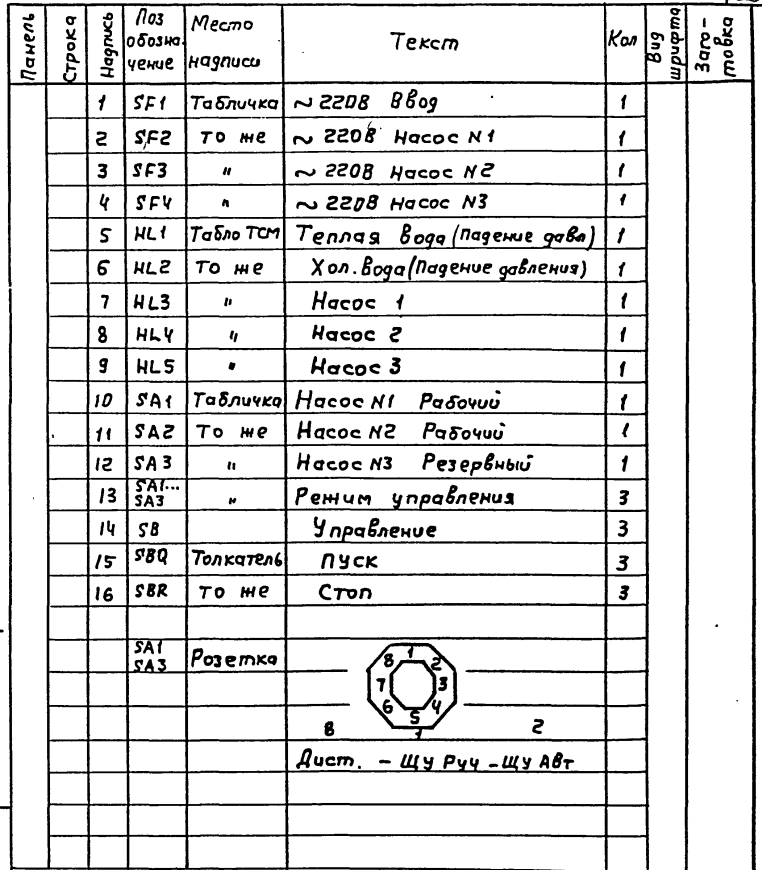 Панель Строка Надпись Поз обозна- чение Место надписи Текст Кол Вид шрифта Заго- товка
1 SF1 Табличка ~ 220В Ввод 1
2 SF2 То же ~ 220В Насос N1 1
3 SF3 " ~ 220В Насос N2 1
4 SF4 " ~ 220В Насос N3 1
5 HL1 Табло ТСМ Теплая вода (Падение давл) 1
6 HL2 То же Хол. вода (Падение давления) 1
7 HL3 " Насос 1 1
8 HL4 " Насос 2 1
9 HL5 " Насос 3 1
10 SA1 Табличка Насос N1 Рабочий 1
11 SA2 То же Насос N2 Рабочий 1
12 SA3 " Насос N3 Резервный 1
13 SA1... SA3 " Режим управления 3
14 SB Управление 3
15 SBQ Толкатель Пуск 3
16 SBR То же Стоп 3
SA1 SA3 Розетка
8 1 2
7 3
6 5 4
8 1 2
Дист. - ЩУ Руч - ЩУ Авт